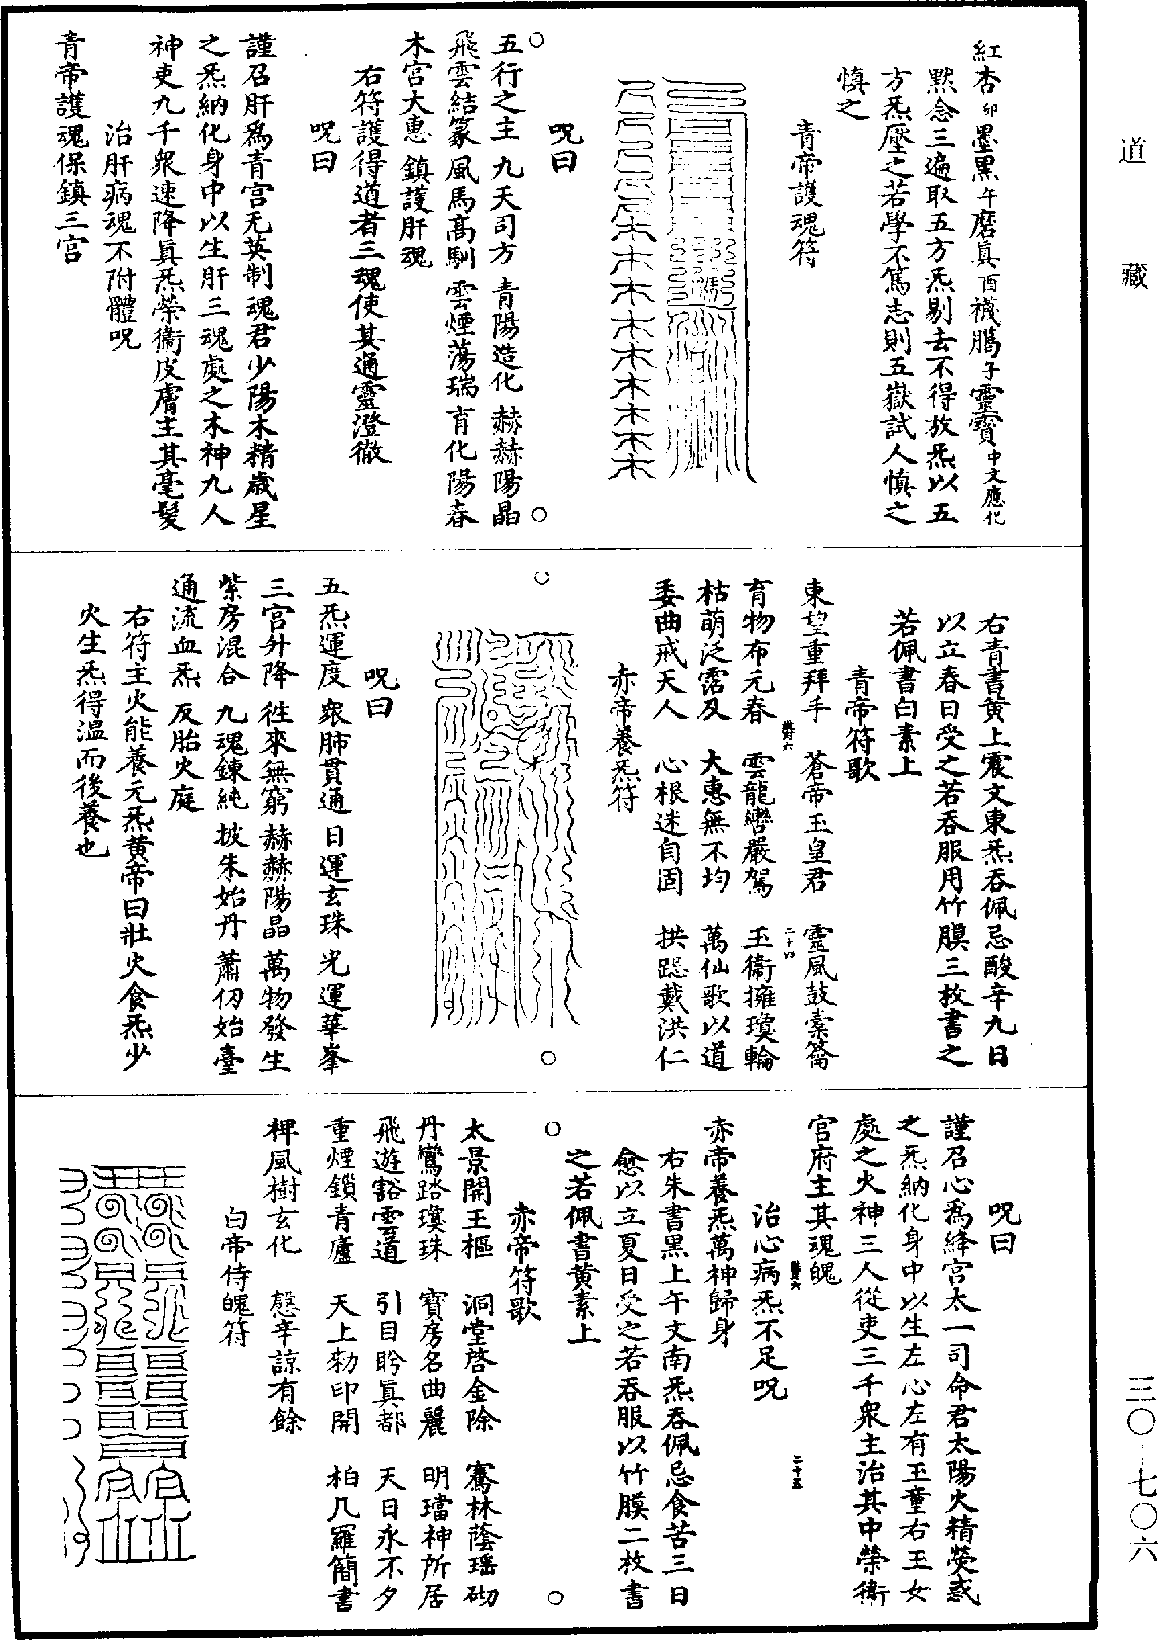 道藏
紅杏卯墨黑午磨真酉襪鵩子靈寶中文應化
默念三遍取五方炁剔去不得放炁以五
方炁壓之若學不篤志則五嶽試人慎之
慎之
青帝護魂符
呪曰
五行之主 九天司方 青陽造化 赫赫陽晶
飛雲結篆 風馬高馴 雲煙蕩瑞 育化陽春
木宮大惠 鎮護肝魂
右符護得道者三魂使其通靈澄徹
呪曰
謹召肝為青宮无英制魂君少陽木精歲星
之炁納化身中以生肝三魂處之木神九人
神吏九千眾速降真炁榮衛皮膚主其毫髮
治肝病魂不附體呪
青帝護魂保鎮三宮
右青書黃上震文東炁吞佩忌酸辛九日
以立春日受之若吞服用竹膜三枚書之
若佩書白素上
青帝符歌
東望重拜手 蒼帝玉皇君 靈風鼓橐籥
育物布元春 雲龍轡嚴駕 玉衛擁瓊輪
枯萌泛露及 大惠無不均 萬仙歌以道
委曲戒天人 心根迷自固 拱跽戴洪仁
赤帝養炁符
呪曰
五炁運度 眾肺貫通 日運玄珠 光運華峯
三宮升降 往來無窮 赫赫陽晶 萬物發生
紫房混合 九魂鍊純 披朱始丹 蕭仞始臺
通流血炁 反胎火庭
右符主火能養元炁黃帝曰壯火食炁少
火生炁得溫而後養也
呪曰
謹召心為絳宮太一司命君太陽火精熒惑
之炁納化身中以生左心左有玉童右玉女
處之火神三人從吏三千眾主治其中榮衛
宮府主其魂魄
治心病炁不足呪
赤帝養炁萬神歸身
右朱書黑上午文南炁吞佩忌食苦三日
愈以立夏日受之若吞服以竹膜二枚書
之若佩書黃素上
赤帝符歌
太景開玉樞 洞堂啓金除 騫林蔭瑤砌
丹鸞踏瓊珠 寶房名曲麗 明璫神所居
飛遊豁雲道 引目盻真都 天日永不夕
重煙鎖青廬 天上勑印開 柏几羅簡書
稗風樹玄化 慇辛諒有餘
白帝侍魄符
三〇-七〇六